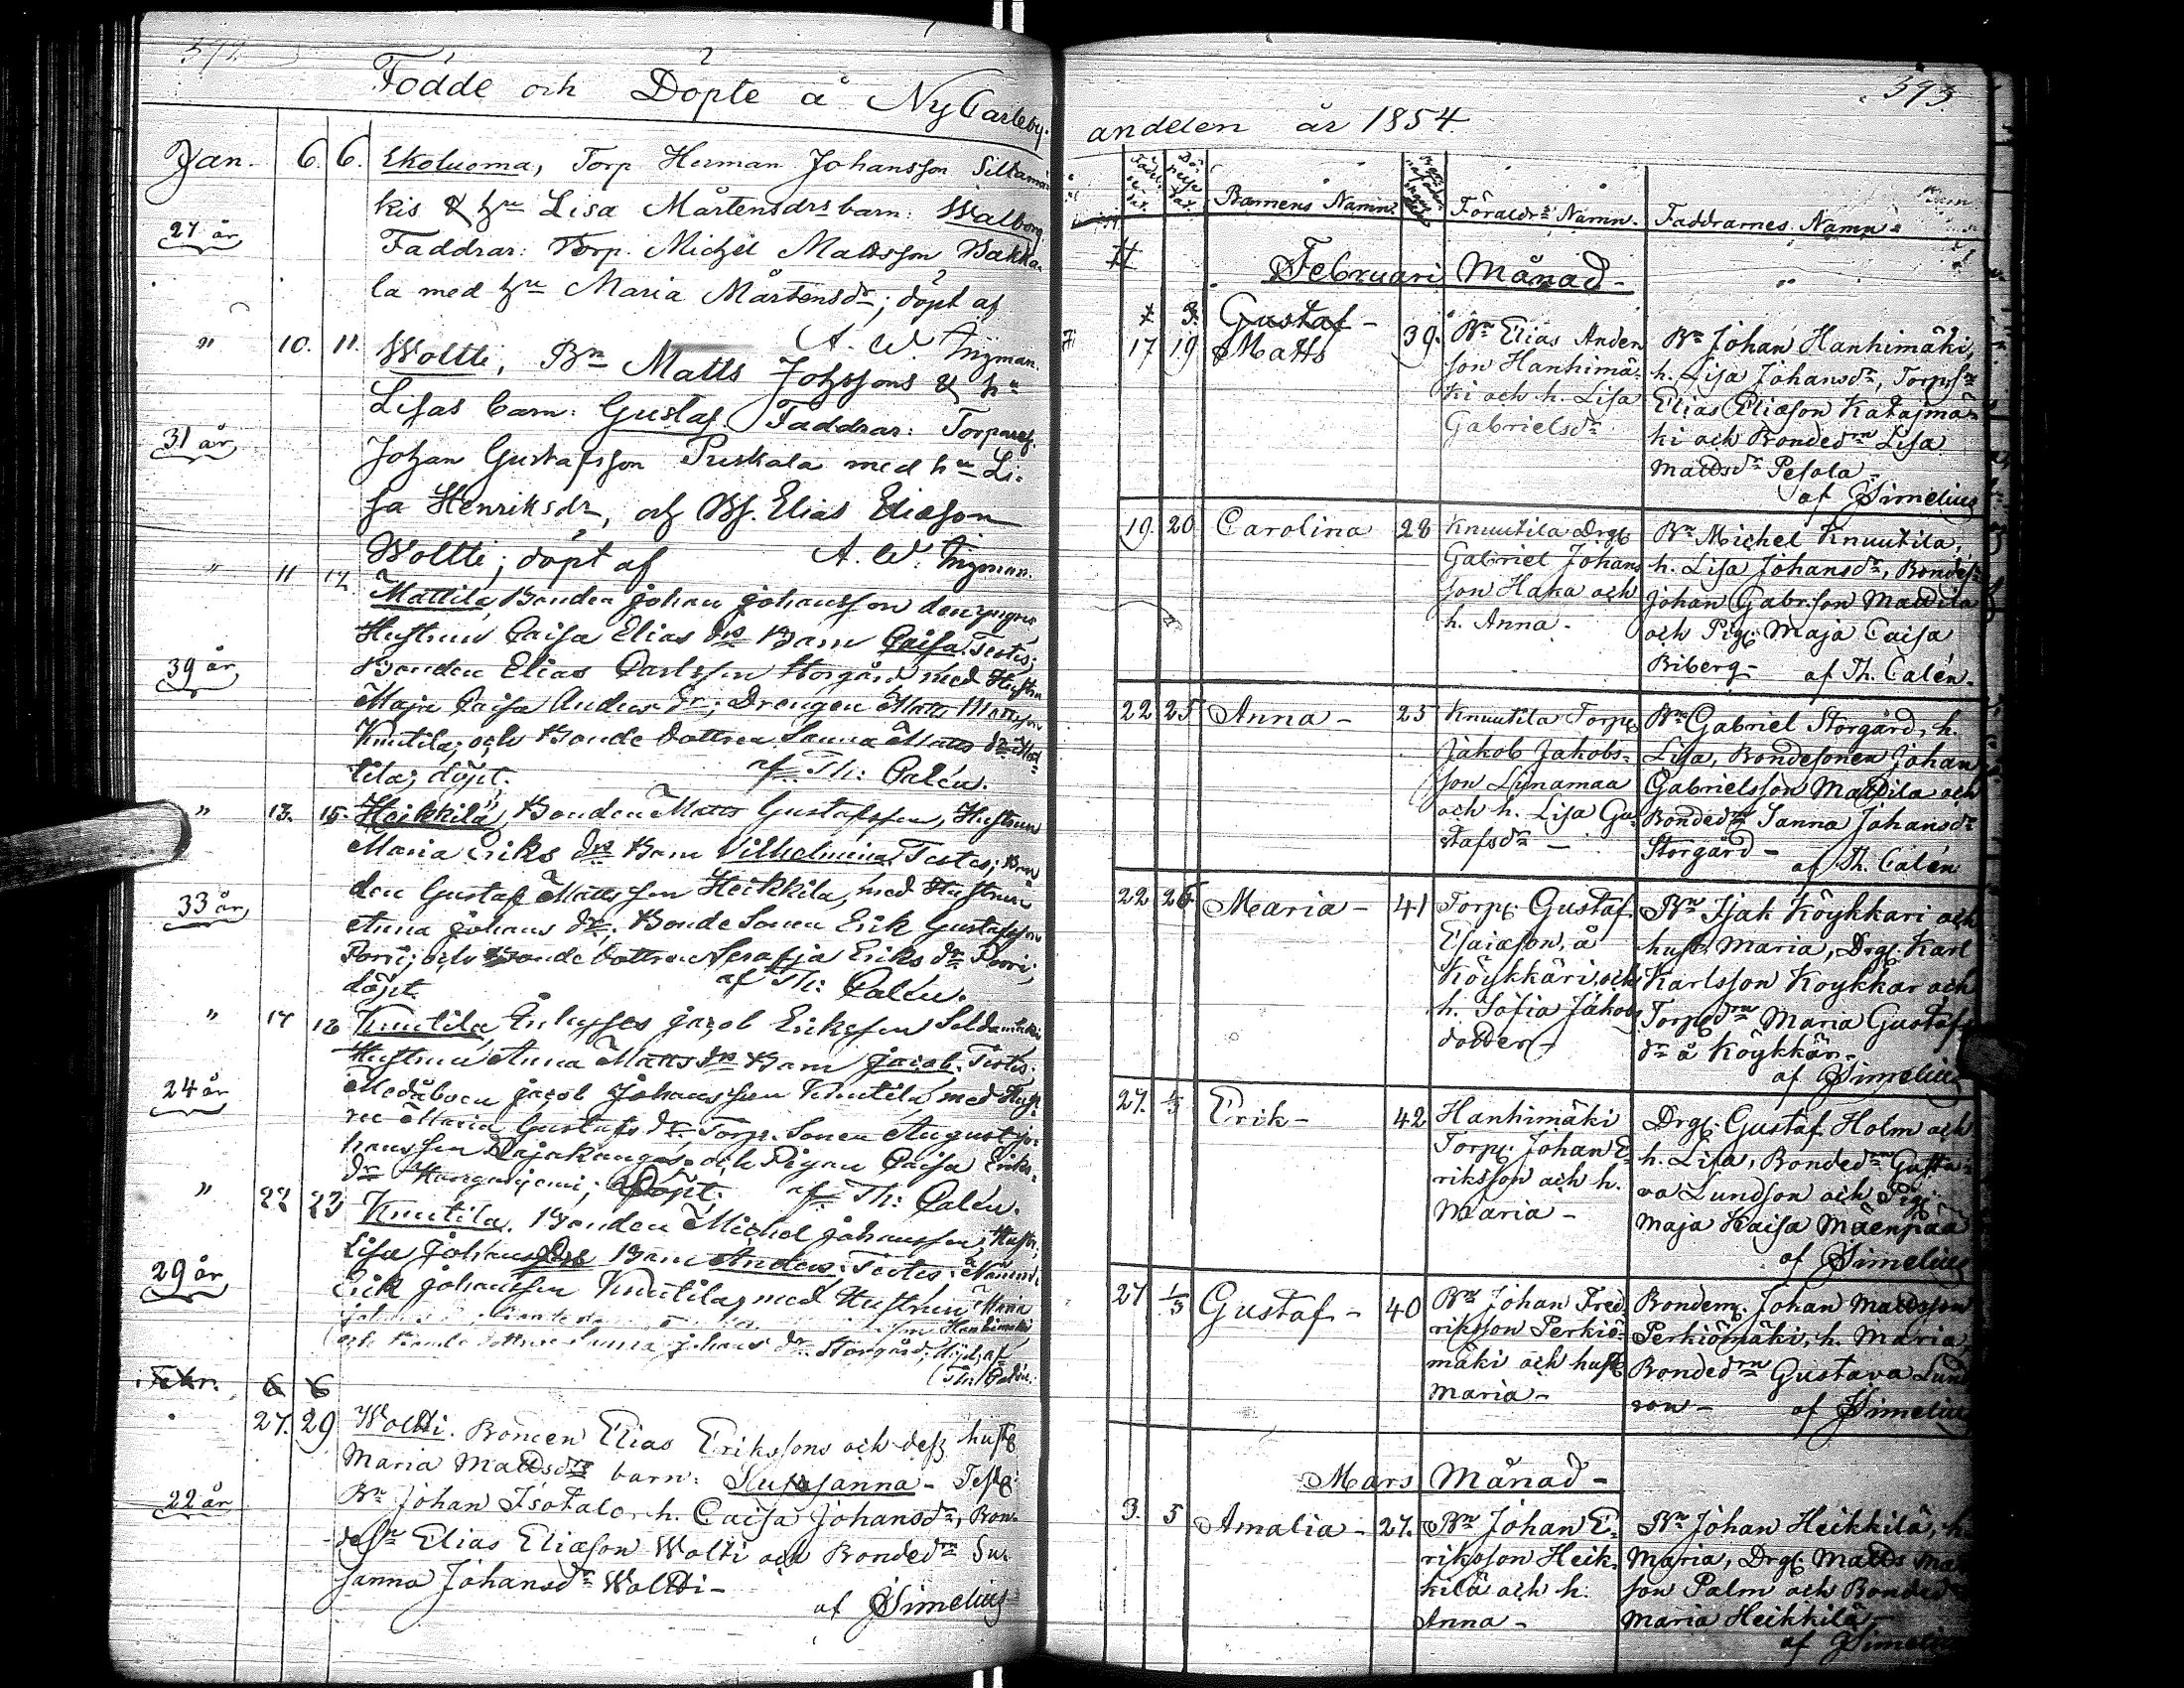 Födde och Döpte å NyCarleby-
Jan. 6. 6. Ekoluoma, Torp Herman Johansson Siltamä
kis & hu Lisa Mårtensdrs barn: Walborg
27 år
Faddrar: Torp. Michel Mattsson Wakka-
la med hu Maria Mårtensdr; döpt af
A. W. Ingman.
" 10. 11. Woltti, Bn Matts Johssons & hu
Lisas barn: Gustaf. Faddrar: Torpares.
31 år
Johan Gustafsson Puskala med hu Li-
sa Henriksdr, och Bs. Elias Eliasson
Woltti; döpt af A. W. Ingman.
" 11 12. Mattila, Bonden Johan Johansson den yngres
Hustrun Caisa Elias drs Barn Caisa. Testes;
39 år
Bonden Elias Carlsson Storgård med Hustru
Maja Caisa Anders dr; Drengen Matts Mattsson
Knutila; och Bonde dottren Sanna Matts dr Mat-
tila; döpt. af Th: Calén.
" 13. 15. Heikkilä, Bonden Matts Gustafsson, Hustrun
Maria Eriks drs Barn Vilhelmina. Testes; Bon
33 år
den Gustaf Mattsson Heikkila, med Hustrun
Anna Johans dr; Bonde Sonen Erik Gustafsson
Porri; och Bonde dottren Serafia Eriks dr Porri;
döpt. af Th: Calén.
" 17 18 Knutila, Inhyses Jacob Eriksson
Hustrun Anna Matts drs Barn Jacob. Testes:
24 år
Medåboen Jacob Johansson Knutila med Hust
ru Maria Gustafs dr. Torp. Sonen August Jo-
hansson Rajakangas och Pigan Caisa Eriks
dr; döpt. af Th: Calén.
" 22 23 Knutila. Bonden Michel Johansson, Hustr;
Lisa Johans drs Barn Anders. Testes: Nämnd:
29 år
Erik Johansson Knutila, med Hustrun Maria
Hanhimäki
och Bonde dottren Sanna Johans dr Storgård; döpt, af
Th: Calén.
Febr. 6 6
27. 29 Woltti. Bonden Elias Erikssons och dess hust
Maria Mattsdrs barn: Sussanna - Test:
22 år
Bn Johan Isotalo, h. Caisa Johansdr, Bon-
desn Elias Eliæson Wolti och Bondedrn Su-
sanna Johansdr Woltti -
af JSimelius
393.
andelen år 1854.
Barnens Namn. Föräldrs Namn. Faddrarnes Namn.
Februari Månad -
7 9. Gustaf -
17 19 Matts 39. Bn Elias Anders
son Hanhimä-
ki och h. Lisa
Gabrielsdr
Bn Johan Hanhimäki,
h. Lisa Johansdr, Torpsn
Elias Eliæson Katajmä-
ki och Bondedrn Lisa
Mattsdr Pesola -
af JSimelius
19. 20 Carolina 28 Knuutila Drg
Gabriel Johans
son Haka och
h. Anna -
Bn Michel Knuutila,
h. Lisa Johansdr, Bondes
Johan Gabr.son Mattila
och Pig: Maja Caisa
Biberg - af Th. Calén.
22 25 Anna - 25 Knuutila Torp
Jakob Jakobs-
son Lynamaa
och h. Lisa Gu-
stafsdr -
Bn Gabriel Storgård, h.
Lisa, Bondesonen Johan
Gabrielsson Mattila och
Bondedrn Sanna Johansdr
Storgård -
af Th. Calén
22 26 Maria - 41 Torp: Gustaf
Esaiæson, å
Köykkäri, och
h. Sofia Jakobs
dotter -
Bn Isak Köykkari och
hust. Maria, Drg: Karl
Karlsson Köykkar och
Torpdrn Maria Gustafs
dr å Köykkär -
af JSimelius
27. 1/3 Erik - 42 Hanhimäki
Torp: Johan E-
riksson och h.
Maria -
Drg: Gustaf Holm och
h. Lisa, Bondedrn Gusta-
va Lundson och Pig:
Maja Kaisa Mäenpää
af JSimelius
27 1/3 Gustaf - 40 Bn Johan Fred
riksson Perkiö-
mäki och hust
Maria -
Bondem. Johan Mattsson
Perkiömäki, h. Maria,
Bondedrn Gustava Lund
son - af JSimelius
Mars Månad -
3. 5 Amalia - 27. Bn Johan E-
riksson Heik-
kilä och h.
Anna -
Bn Johan Heikkilä, h
Maria, Drg: Matts Mat
son Palm och Bondedr
Maria Heikkilä -
af JSimelius